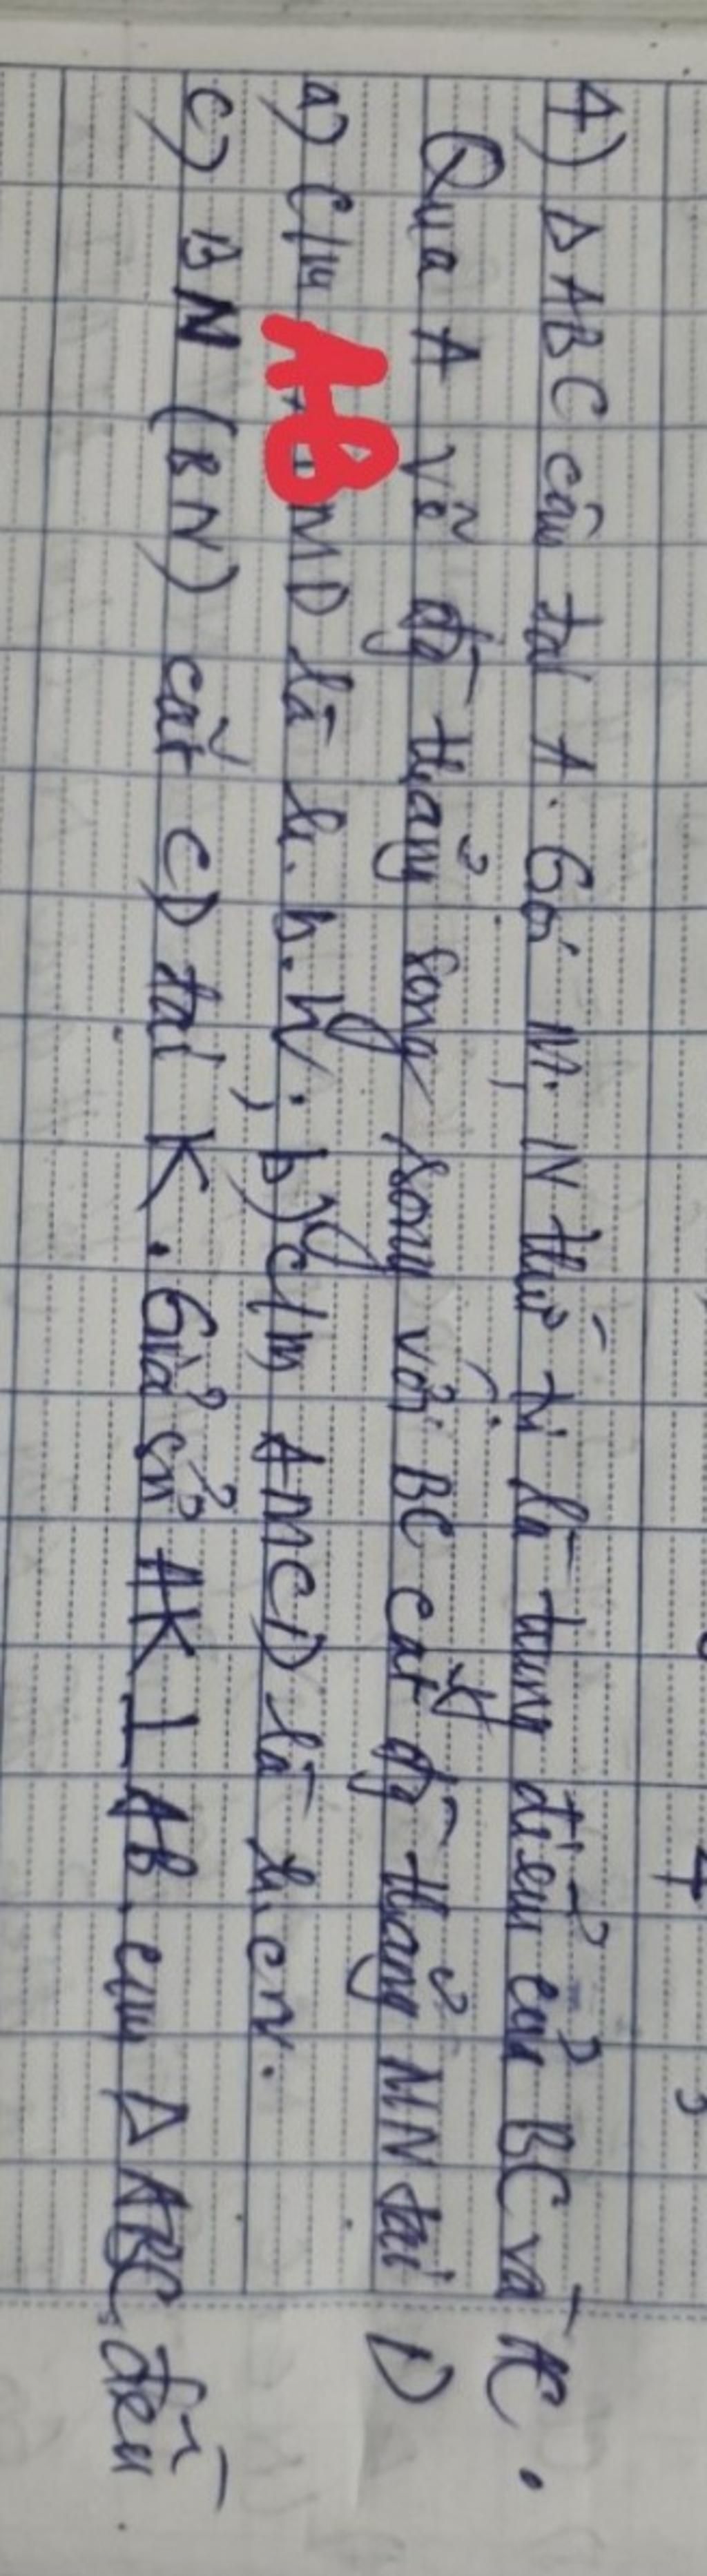 4) Δ ABC cân tại A. Gọi M, N thứ tự là trung điểm của BC và AC.
Qua A vẽ đg thẳng song song với BC cắt đg thẳng MN tại D
a) C/m ABMD là h.b.h; b) C/m AMCD là h.cn.
c) BN (BN) cắt CD tại K. Giả sử AK ⊥ AB. cm Δ ABC đều